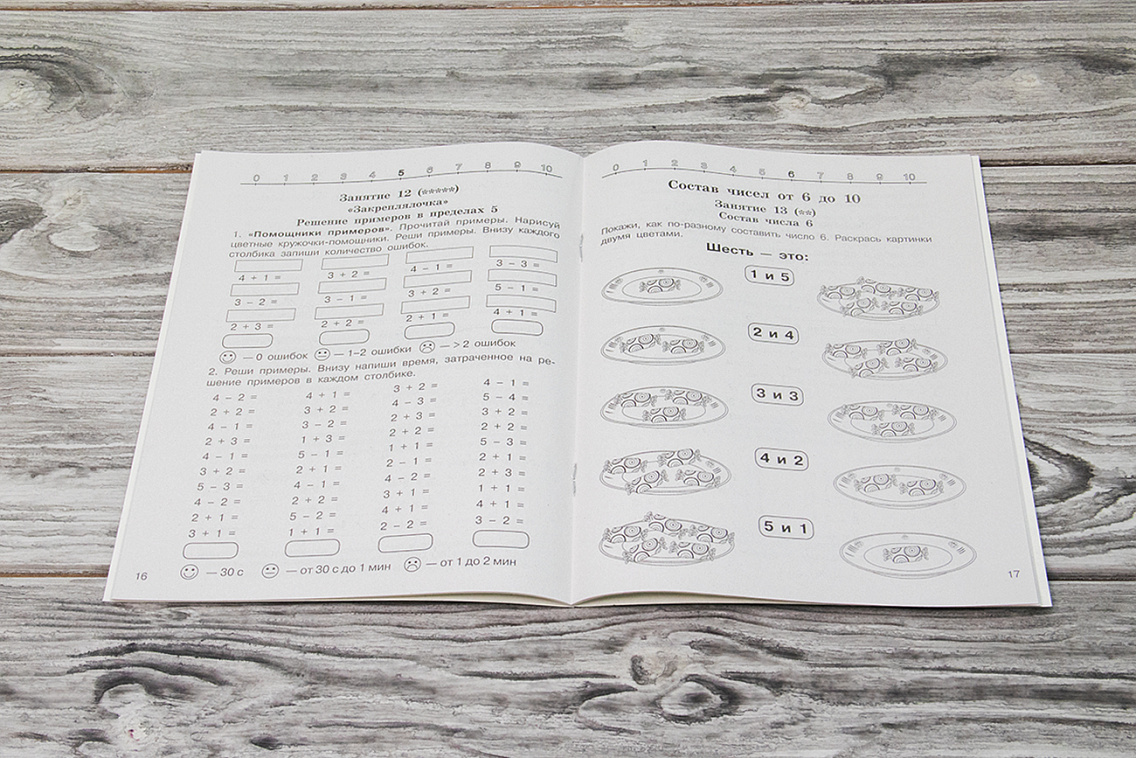 0 1 2 3 4 5 6 7 8 9 10
Занятие 12 (*****)
«Закреплялочка»
Решение примеров в пределах 5
1. «Помощники примеров». Прочитай примеры. Нарисуй
цветные кружочки-помощники. Реши примеры. Внизу каждого
столбика запиши количество ошибок.
4 + 1 = 3 + 2 = 4 − 1 = 3 − 3 =
3 − 2 = 3 − 1 = 3 + 2 = 5 − 1 =
2 + 3 = 2 + 2 = 2 + 2 = 4 + 1 =
— 0 ошибок — 1–2 ошибки — > 2 ошибок
2. Реши примеры. Внизу напиши время, затраченное на ре-
шение примеров в каждом столбике.
4 − 2 = 4 + 1 = 3 + 2 = 4 − 1 =
2 + 2 = 3 + 2 = 4 − 3 = 5 − 4 =
4 − 1 = 3 − 2 = 2 + 3 = 3 + 2 =
2 + 3 = 1 + 3 = 2 + 2 = 2 + 2 =
4 − 1 = 5 − 1 = 1 + 1 = 5 − 3 =
3 + 2 = 2 + 1 = 2 − 1 = 2 + 1 =
5 − 3 = 4 − 1 = 4 − 2 = 2 + 3 =
4 − 2 = 2 + 2 = 3 + 1 = 1 + 1 =
2 + 1 = 5 − 2 = 4 + 1 = 4 + 1 =
3 + 1 = 1 + 1 = 2 − 2 = 3 − 2 =
— 30 с — от 30 с до 1 мин — от 1 до 2 мин
16
0 1 2 3 4 5 6 7 8 9 10
Состав чисел от 6 до 10
Занятие 13 (**)
Состав числа 6
Покажи, как по-разному составить число 6. Раскрась картинки
двумя цветами.
Шесть — это:
1 и 5
2 и 4
3 и 3
4 и 2
5 и 1
17